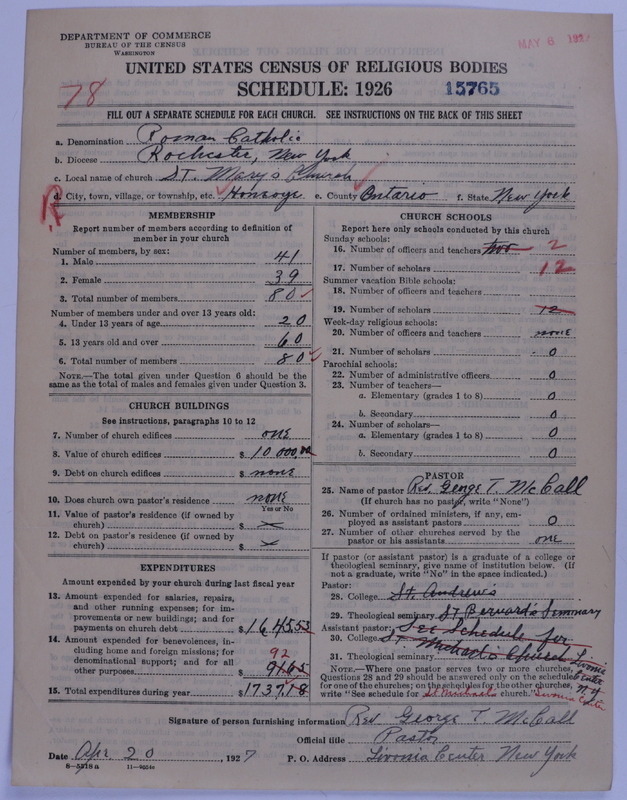 DEPARTMENT OF COMMERCE
BUREAU OF THE CENSUS
WASHINGTON
MAY 6 1927
UNITED STATES CENSUS OF RELIGIOUS BODIES
78
SCHEDULE: 1926 15765
FILL OUT A SEPARATE SCHEDULE FOR EACH CHURCH. SEE INSTRUCTIONS ON THE BACK OF THIS SHEET
a. Denomination Roman Catholic
b. Diocese Rochester, New York
c. Local name of church ST. Mary's Church
d. City, town, village, or township, etc. Honeoye e. County Ontario f. State New York
MEMBERSHIP
Report number of members according to definition of
member in your church
Number of members, by sex:
1. Male 41
2. Female 39
3. Total number of members 80
Number of members under and over 13 years old:
4. Under 13 years of age 20
5. 13 years old and over 60
6. Total number of members 80
NOTE.—The total given under Question 6 should be the
same as the total of males and females given under Question 3.
CHURCH BUILDINGS
See instructions, paragraphs 10 to 12
7. Number of church edifices one
8. Value of church edifices $ 10 000.00
9. Debt on church edifices $ none
10. Does church own pastor's residence none
Yes or No
11. Value of pastor's residence (if owned by
church) $ x
12. Debt on pastor's residence (if owned by
church) $ x
EXPENDITURES
Amount expended by your church during last fiscal year
13. Amount expended for salaries, repairs,
and other running expenses; for im-
provements or new buildings; and for
payments on church debt $ 1645.53
14. Amount expended for benevolences, in-
cluding home and foreign missions; for
denominational support; and for all 92
other purposes $ 9165
15. Total expenditures during year $ 1737.18
CHURCH SCHOOLS
Report here only schools conducted by this church
Sunday schools:
16. Number of officers and teachers two 2
17. Number of scholars 12
Summer vacation Bible schools:
18. Number of officers and teachers
19. Number of scholars 12
Week-day religious schools:
20. Number of officers and teachers none
21. Number of scholars 0
Parochial schools:
22. Number of administrative officers 0
23. Number of teachers—
a. Elementary (grades 1 to 8) 0
b. Secondary 0
24. Number of scholars—
a. Elementary (grades 1 to 8) 0
b. Secondary 0
PASTOR
25. Name of pastor Rev. George T. McCall
(If church has no pastor, write "None")
26. Number of ordained ministers, if any, em-
ployed as assistant pastors 0
27. Number of other churches served by the
pastor or his assistants one
If pastor (or assistant pastor) is a graduate of a college or
theological seminary, give name of institution below. (If
not a graduate, write "No" in the space indicated.)
Pastor:
28. College St. Andrew's
29. Theological seminary St Bernard's Seminary
Assistant pastor: See Schedule for
30. College St.
31. Theological seminary Michael's Church Livonia
Center
N.Y
NOTE.—Where one pastor serves two or more churches,
Questions 28 and 29 should be answered only on the schedule
for one of the churches; on the schedules for the other churches,
write "See schedule for St Michael's church." Livonia Center
Signature of person furnishing information Rev. George T. McCall
Official title Pastor
Date Apr. 20, 1927 P. O. Address Livonia Center New York
8—5518a